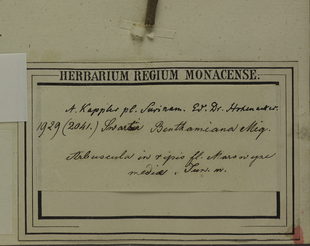 HERBARIUM REGIUM MONACENSE.
A. Kappler pl. Surinam. Ed. Dr. Hohenacker.
1929 (2041.) Swartzia Benthamiana Miq.
Arbuscula in ripis fl. Marowyne
mediae. Jun. m.